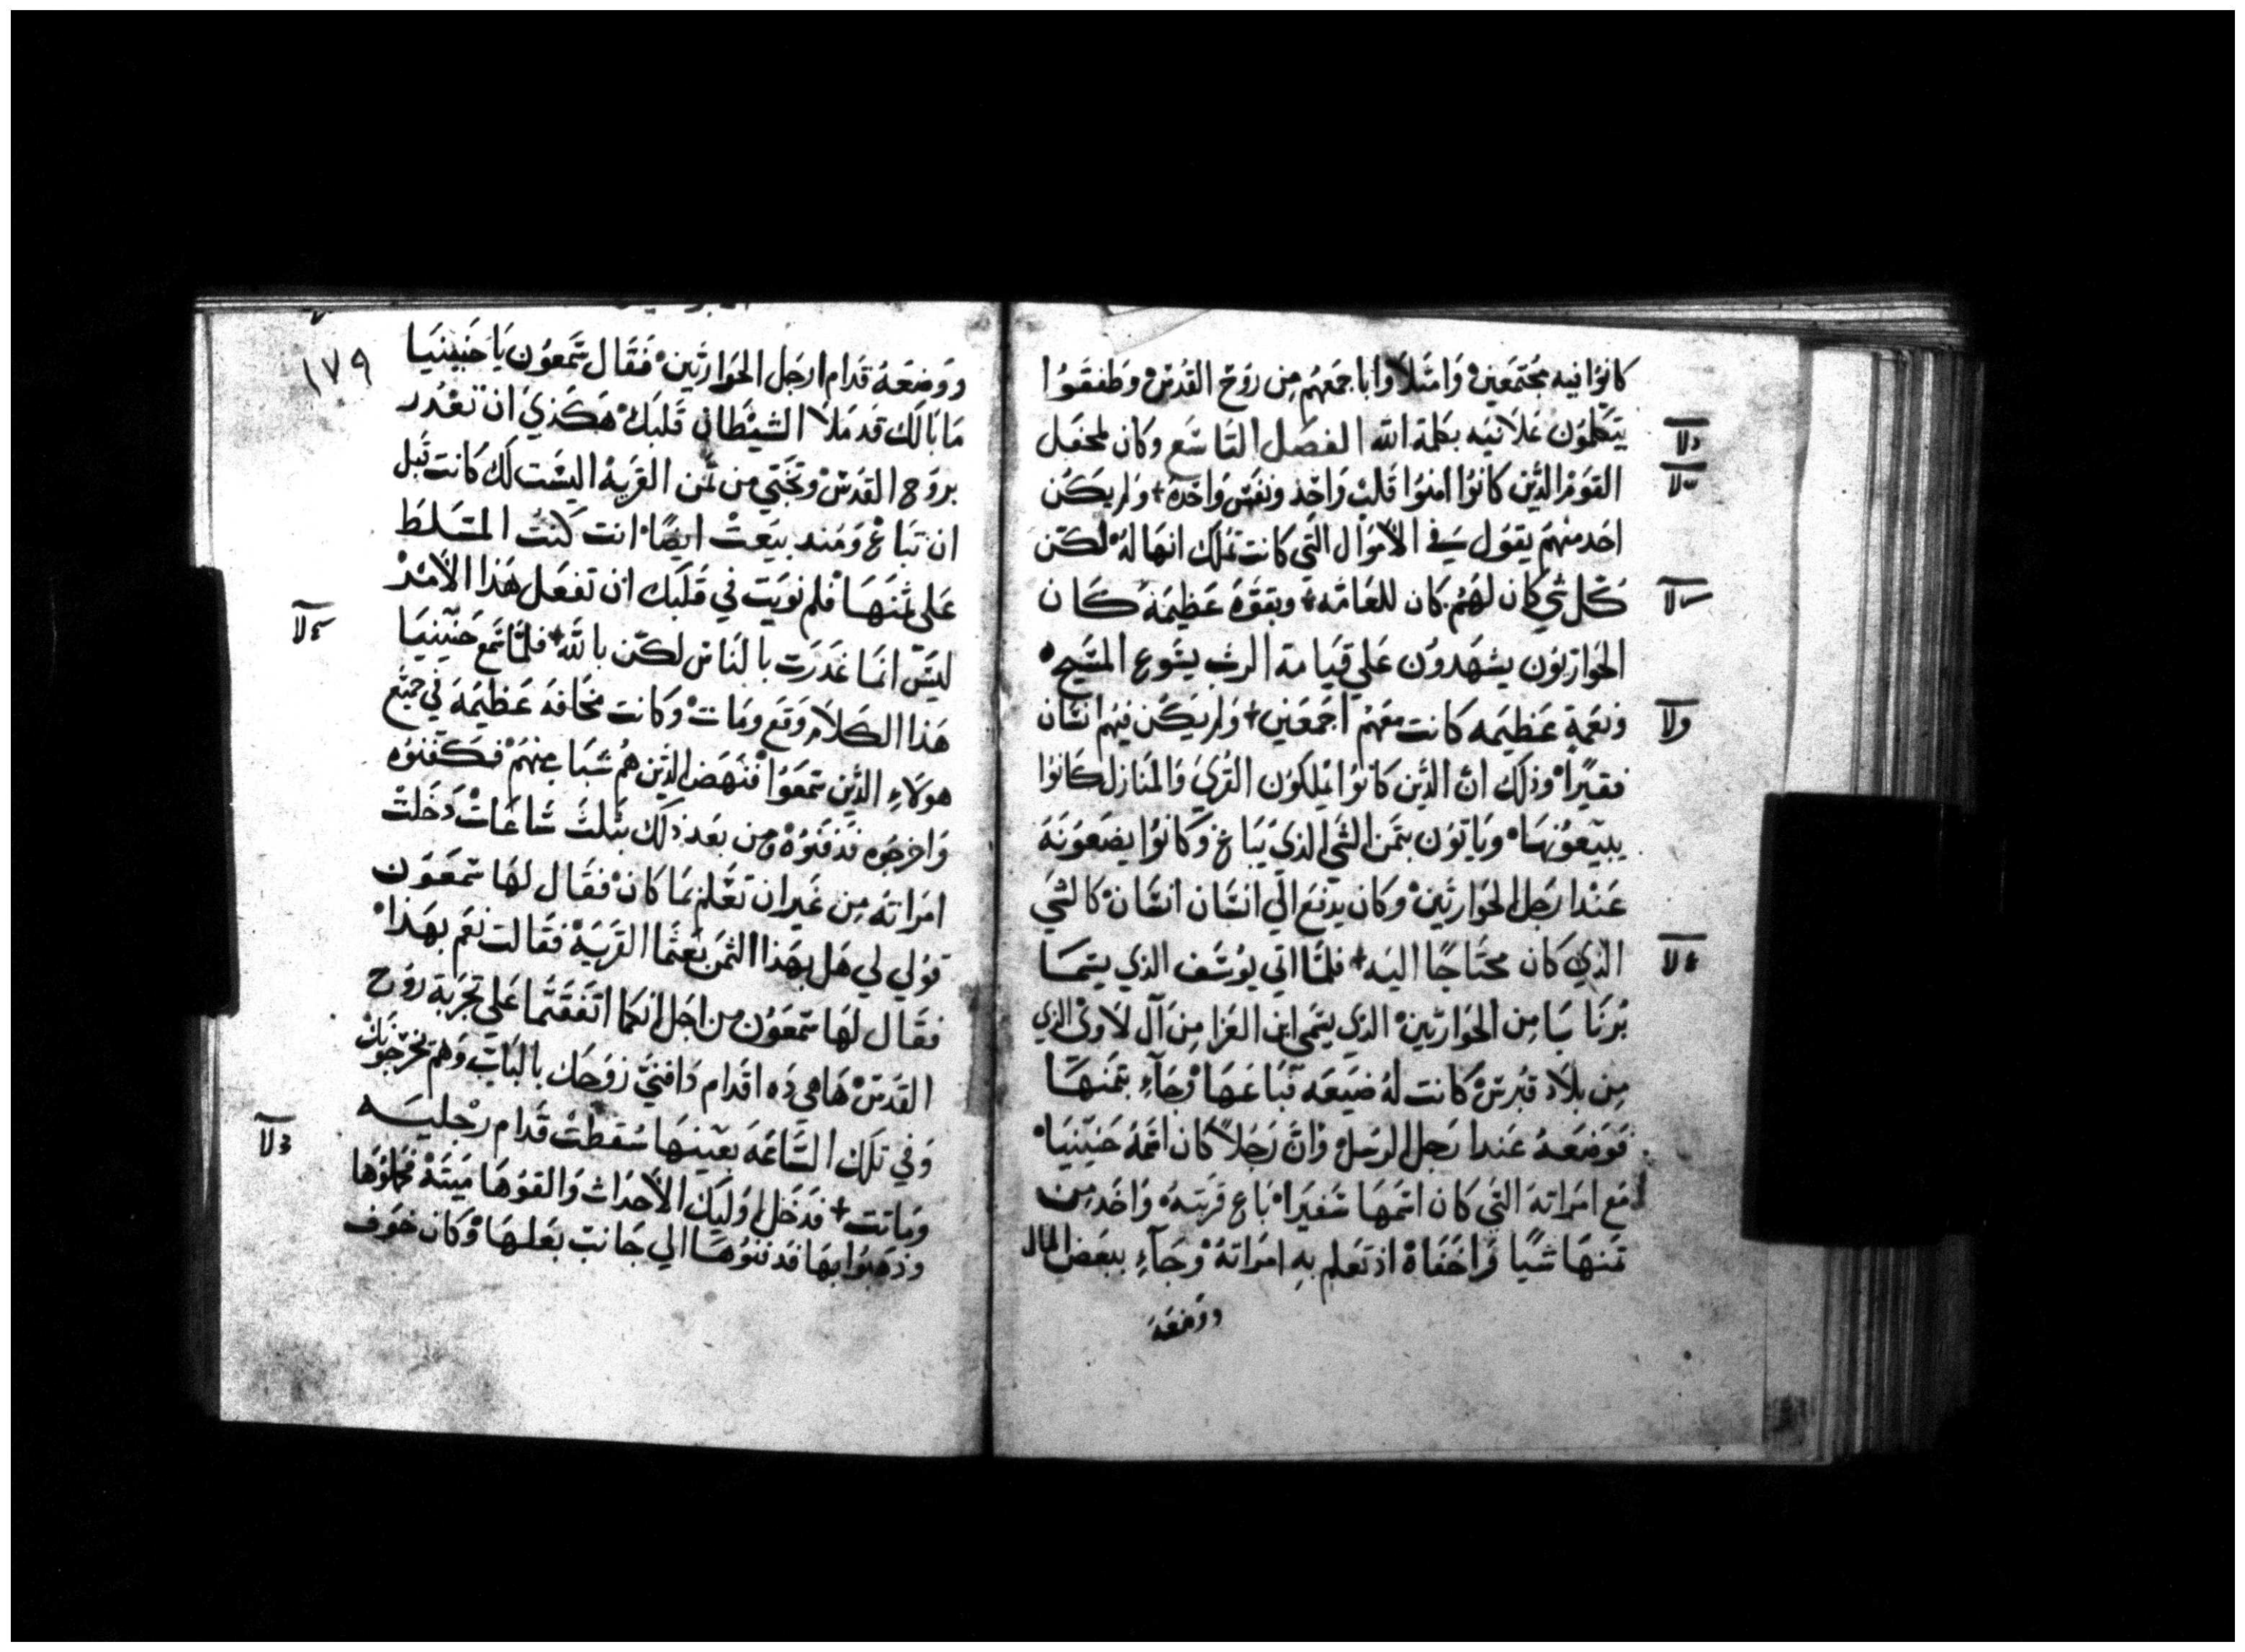 كانوا فيه مجتمعين وامتلاوا باجمعهم من روح القدس وطفقوا
يتكلمون علانيه بكلمة الله الفصل التاسع وكان لمحفل
القوم الذين كانوا امنوا قلب واحد ونفس واحدة + ولم يكن
احد منهم يقول في الاموال التي كانت تملك انها له لكن
كل شي كان لهم كان للعامه + وبقوة عظيمة كان
الحواريون يشهدون علي قيامة الرب يشوع المسيح
ونعمة عظيمه كانت معهم اجمعين + ولم يكن فيهم انسان
فقيرا وذلك ان الذين كانوا يملكون القري والمنازل كانوا
يبيعونها وياتون بثمن الشي الذي يباع وكانوا يضعونه
عند ارجل الحواريين وكان يدفع الي انسان انسان كالشي
الذي كان محتاجا اليه + فلما اتي يوسف الذي يسما
برنابا من الحواريين الذي يسمي ابن العزا من آل لاوي الذي
من بلاد قبرس كانت له ضيعه فباعها وجآء بثمنها
فوضعه عند ارجل الرسل وان رجلا كان اسمه حنينيا
مع امراته التي كان اسمها شفيرا باع قريته واخذ من
ثمنها شيا فراخفاه اذ تعلم به امراته وجآء ببعض المال
ووضعه
١٧٩
ووضعه قدام ارجل الحواريين فقال شمعون يا حنينيا
ما بالك قد ملا الشيطان قلبك هكذي ان تغدر
بروح القدس وتختي من ثمن القرية اليست لك كانت قبل
ان تباع ومند بيعت ايضا انت كنت المتسلط
علي ثمنها فلم نويت في قلبك ان تفعل هذا الامر
ليس انما غدرت بالناس لكن بالله + فلما سمع حنينيا
هذا الكلام وقع ومات وكانت مخافه عظيمة في جميع
هولاء الذين سمعوا فنهض الذين هم شباب منهم فكفنوه
واخرجوه فدفنوه ومن بعد ذلك بثلث ساعات دخلت
امراته من غير ان تعلم بما كان فقال لها شمعون
قولي لي هل بهذا الثمن بعتما القرية فقالت نعم بهذا
فقال لها شمعون من اجل انكما اتفقتما علي تجربة روح
القدس ها هي ذه اقدام دافني زوجك بالباب وهم يخرجونك
وفي تلك الساعة بعينها سقطت قدام رجليه
وماتت + فدخل اوليك الاحداث والقوها ميتة فحملوها
وذهبوا بها فدفنوها الي جانب بعلها وكان خوف